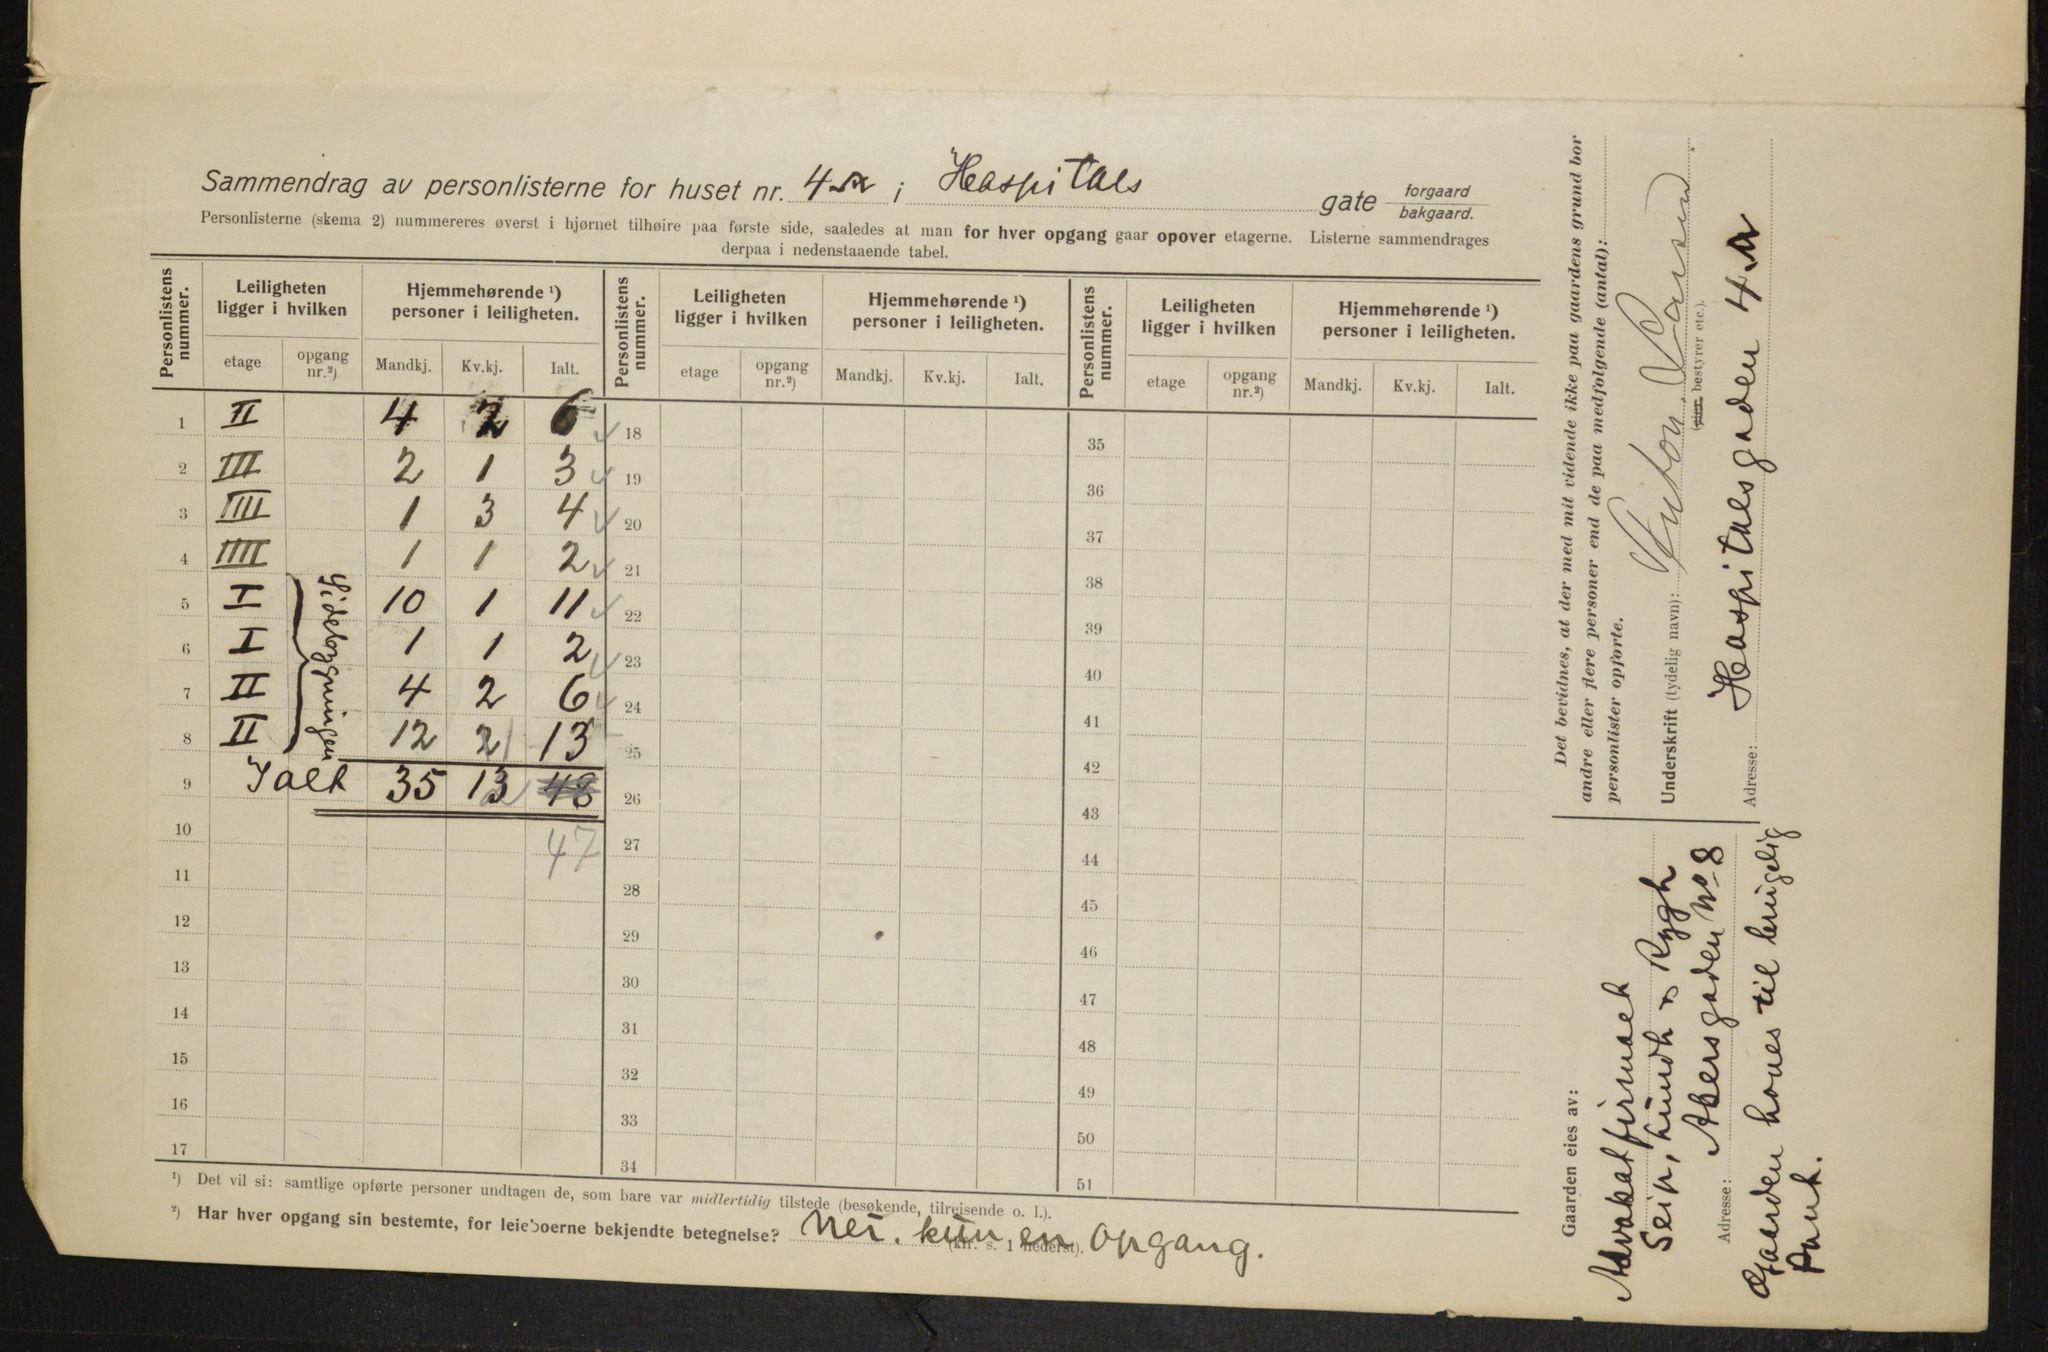 Sammendrag av personlisterne for huset nr. 4a i Hospitals gate forgaard bakgaard.
Personlisterne (skema 2) nummereres øverst i hjørnet tilhøire paa første side, saaledes at man for hver opgang gaar opover etagerne. Listerne sammendrages
derpaa i nedenstaaende tabel.
Personlistens nummer. Leiligheten ligger i hvilken Hjemmehørende ¹) personer i leiligheten. Personlistens nummer. Leiligheten ligger i hvilken Hjemmehørende ¹) personer i leiligheten. Personlistens nummer. Leiligheten ligger i hvilken Hjemmehørende ¹) personer i leiligheten.
etage opgang nr.²) Mandkj. Kv.kj. Ialt. etage opgang nr.²) Mandkj. Kv.kj. Ialt. etage opgang nr.²) Mandkj. Kv.kj. Ialt.
1 II 4 2 6 18 35
2 III 2 1 3 19 36
3 IIII 1 3 4 20 37
4 IIIII 1 1 2 21 38
Sidebygningen
5 I 10 1 11 22 39
6 I 1 1 2 23 40
7 II 4 2 6 24 41
8 II 12 2 1 13 25 42
9 Ialt 35 13 2 48 26 43
10 47 27 44
11 28 45
12 29 46
13 30 47
14 31 48
15 32 49
16 33 50
17 34 51
¹) Det vil si: samtlige opførte personer undtagen de, som bare var midlertidig tilstede (besøkende, tilreisende o. l.).
²) Har hver opgang sin bestemte, for leieboerne bekjendte betegnelse? Nei. kun en opgang.
(kfr. s. 1 nederst).
Det bevidnes, at der med mit vidende ikke paa gaardens grund bor
andre eller flere personer end de paa medfølgende (antal):
personlister opførte.
Underskrift (tydelig navn): Anton Larsen
(eier, bestyrer etc.).
Adresse: Hospitalsgaden 4a
Gaarden eies av:
Advokatfirmaet
Sein, Lundh & Rygh
Adresse: Akersgaden No 8
Gaarden haves til brugelig
Pant.